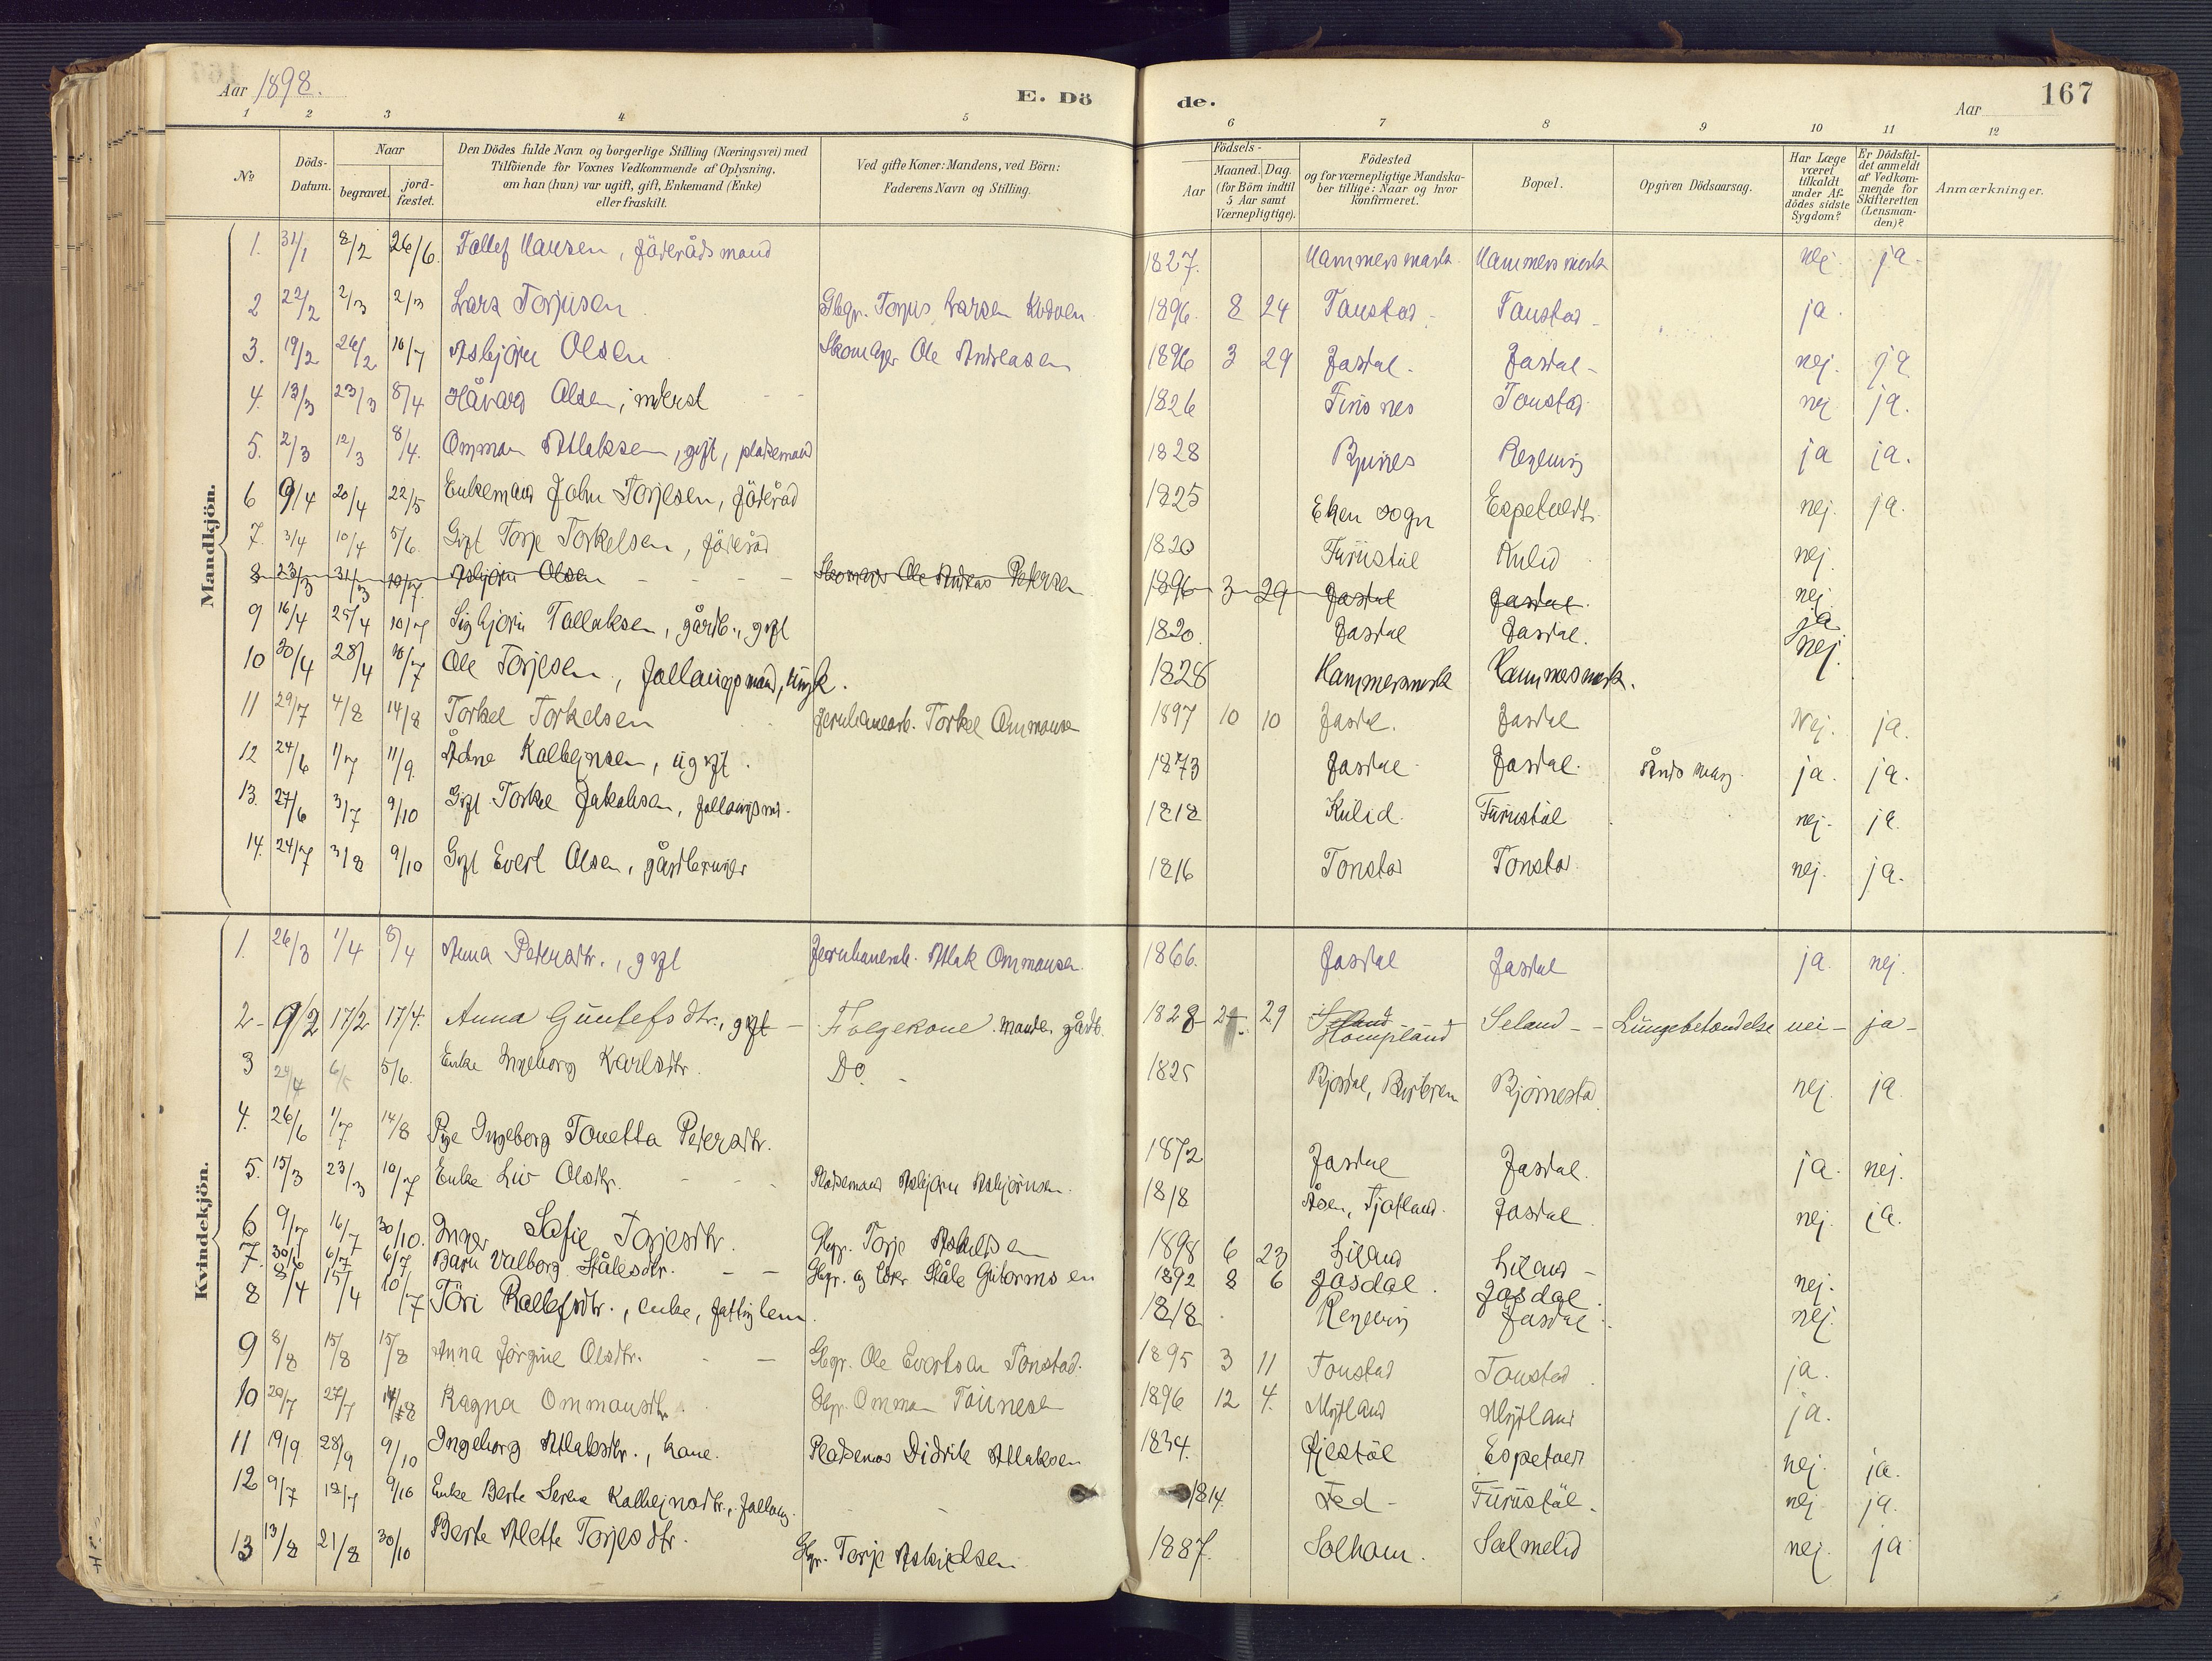 Aar 1898. E. Dö de. Aar 167
1 2 3 4 5 6 7 8 9 10 11 12
№
Döds-Datum.
Naar
begravet.
jord-fæstet.
Den Dödes fulde Navn og borgerlige Stilling (Næringsvei) med
Tilföiende for Voxnes Vedkommende af Oplysning,
om han (hun) var ugift, gift, Enkemand (Enke)
eller fraskilt.
Ved gifte Koner: Mandens, ved Börn:
Faderens Navn og Stilling.
Födsels-
Aar
Maaned. Dag.
(for Börn indtil
5 Aar samt
Værnepligtige).
Födested
og for værnepligtige Mandska-
ber tillige: Naar og hvor
konfirmeret.
Bopæl.
Opgiven Dödsaarsag.
Har Læge
været
tilkaldt
under Af-
dödes sidste
Sygdom?
Er Dödsfal-
det anmeldt
af Vedkom-
mende for
Skifteretten
(Lensman-
den)?
Anmærkninger.
Mandkjön.
1. 31/1 8/2 26/6. Tallef Hansen, föderådsmand 1827. Hammersmark Hammersmark nej ja.
2 22/2 2/3 2/3 Lars Torjusen Gbgr. Torjus Larsen 1896. 8 24 Tonstad Tonstad ja.
3. 19/2 26/2 10/7 Asbjørn Olsen Skomager Ole Andreasen 1896 3 29 Josdal. Josdal nej. ja
4. 13/3 23/3 8/4 Håvard Olsen, inderst 1826 Finsnes Tonstad nej ja.
5. 2/3 12/3 8/4. Omman Atlaksen, gift, pladsemand 1828 ja ja.
6 9/4 20/4 22/5 Enkemand John Torjesen, föderåd 1825 Eken sogn Espetveit nej. ja.
7. 3/4 10/4 5/6. Gift Torje Torkelsen, föderåd 1820 Furustøl Kulid nej.
8 23/3 31/3 10/7. Asbjørn Olsen Skomager Ole Andreas Petersen 1896 3 29 Josdal Josdal. nej.
9 16/4 25/4 10/7 Sigbjørn Tallaksen, gårdb., gift 1820. Josdal Josdal. ja
10 30/4 28/4 10/7 Ole Torjesen, 1828 Hammersmark Hammersmark. nej.
11 29/7 4/8 14/8 Torkel Torkelsen Jernbanearb. Torkel Ommansen 1897 10 10 Josdal. Josdal Nej. ja.
12 24/6 1/7 11/9. Ådne Kolbeinsen, ugift. 1873 Josdal. Josdal. ja. ja.
13. 27/6 3/7 9/10 Gift Torkel Jakobsen, 1818 Kulid. Furustøl nej. ja.
14. 24/7 3/8 9/10 Gift Evert Olsen, gårdbruger 1816 Tonstad Tonstad. nej. ja.
Kvindekjön.
1. 26/3 1/4 8/4 Anna Petersdtr., gift Jernbanearb. Atlak Ommansen. 1866. Josdal Josdal ja. nej.
2- 9/2 17/2 17/4. Anna Guntefsdtr., gift - Folgekone. 1828 2 29 Seland Hompland Seland - Lungebetændelse nei - ja -
3 29/4 6/5 5/6. Enke Ingeborg Karlsdtr. Do. 1825 Bjørnestad nej. ja.
4. 26/6 1/7 14/8 Pige Ingeborg Tonetta Petersdtr. 1872 Josdal Josdal. ja. nej.
5. 15/3 23/3 10/7 Enke Liv Olsdtr. Pladsemand Asbjørn Asbjørnsen. 1818 Åsen, Tjøtland. Josdal. nej. ja.
6 9/7 16/7 30/10. Inger Sofie Torjesdtr. Gbgr. Torje 1898 6 23 Liland Liland -
7. 30/6 6/7 6/7 Barn Valborg Ståledtr. Gbgr. og lærer Ståle Gutormsen 1892 8 6 Josdal. Josdal. nej.
8 8/4 15/4 10/7 Töri Rallefsdtr., enke, fattiglem. 1818 Josdal. nej.
9 8/8 15/8 15/8 Anna Jørgine Olsdtr. Gbgr. Ole Evertsen Tonstad. 1895 3 11 Tonstad Tonstad ja.
10 20/7 27/7 14/8 Ragna Ommansdtr. Gbgr. Omman 1896 12 4. Mydland Mydland ja.
11 19/9. 28/9 9/10 Ingeborg Atlaksdtr., kone. Pladsemand Didrik Atlaksen 1834. Espetveit nej. ja.
12 9/7 18/7 9/10 Enke Berte Serine Kolbeinsdtr., 1814. Fed - Furustøl. nej. ja.
13 13/8 21/8 30/10 Berte Alette Torjesdtr. Gbgr. Torje Askildsen 1887. Solhom. Salmelid nej. ja